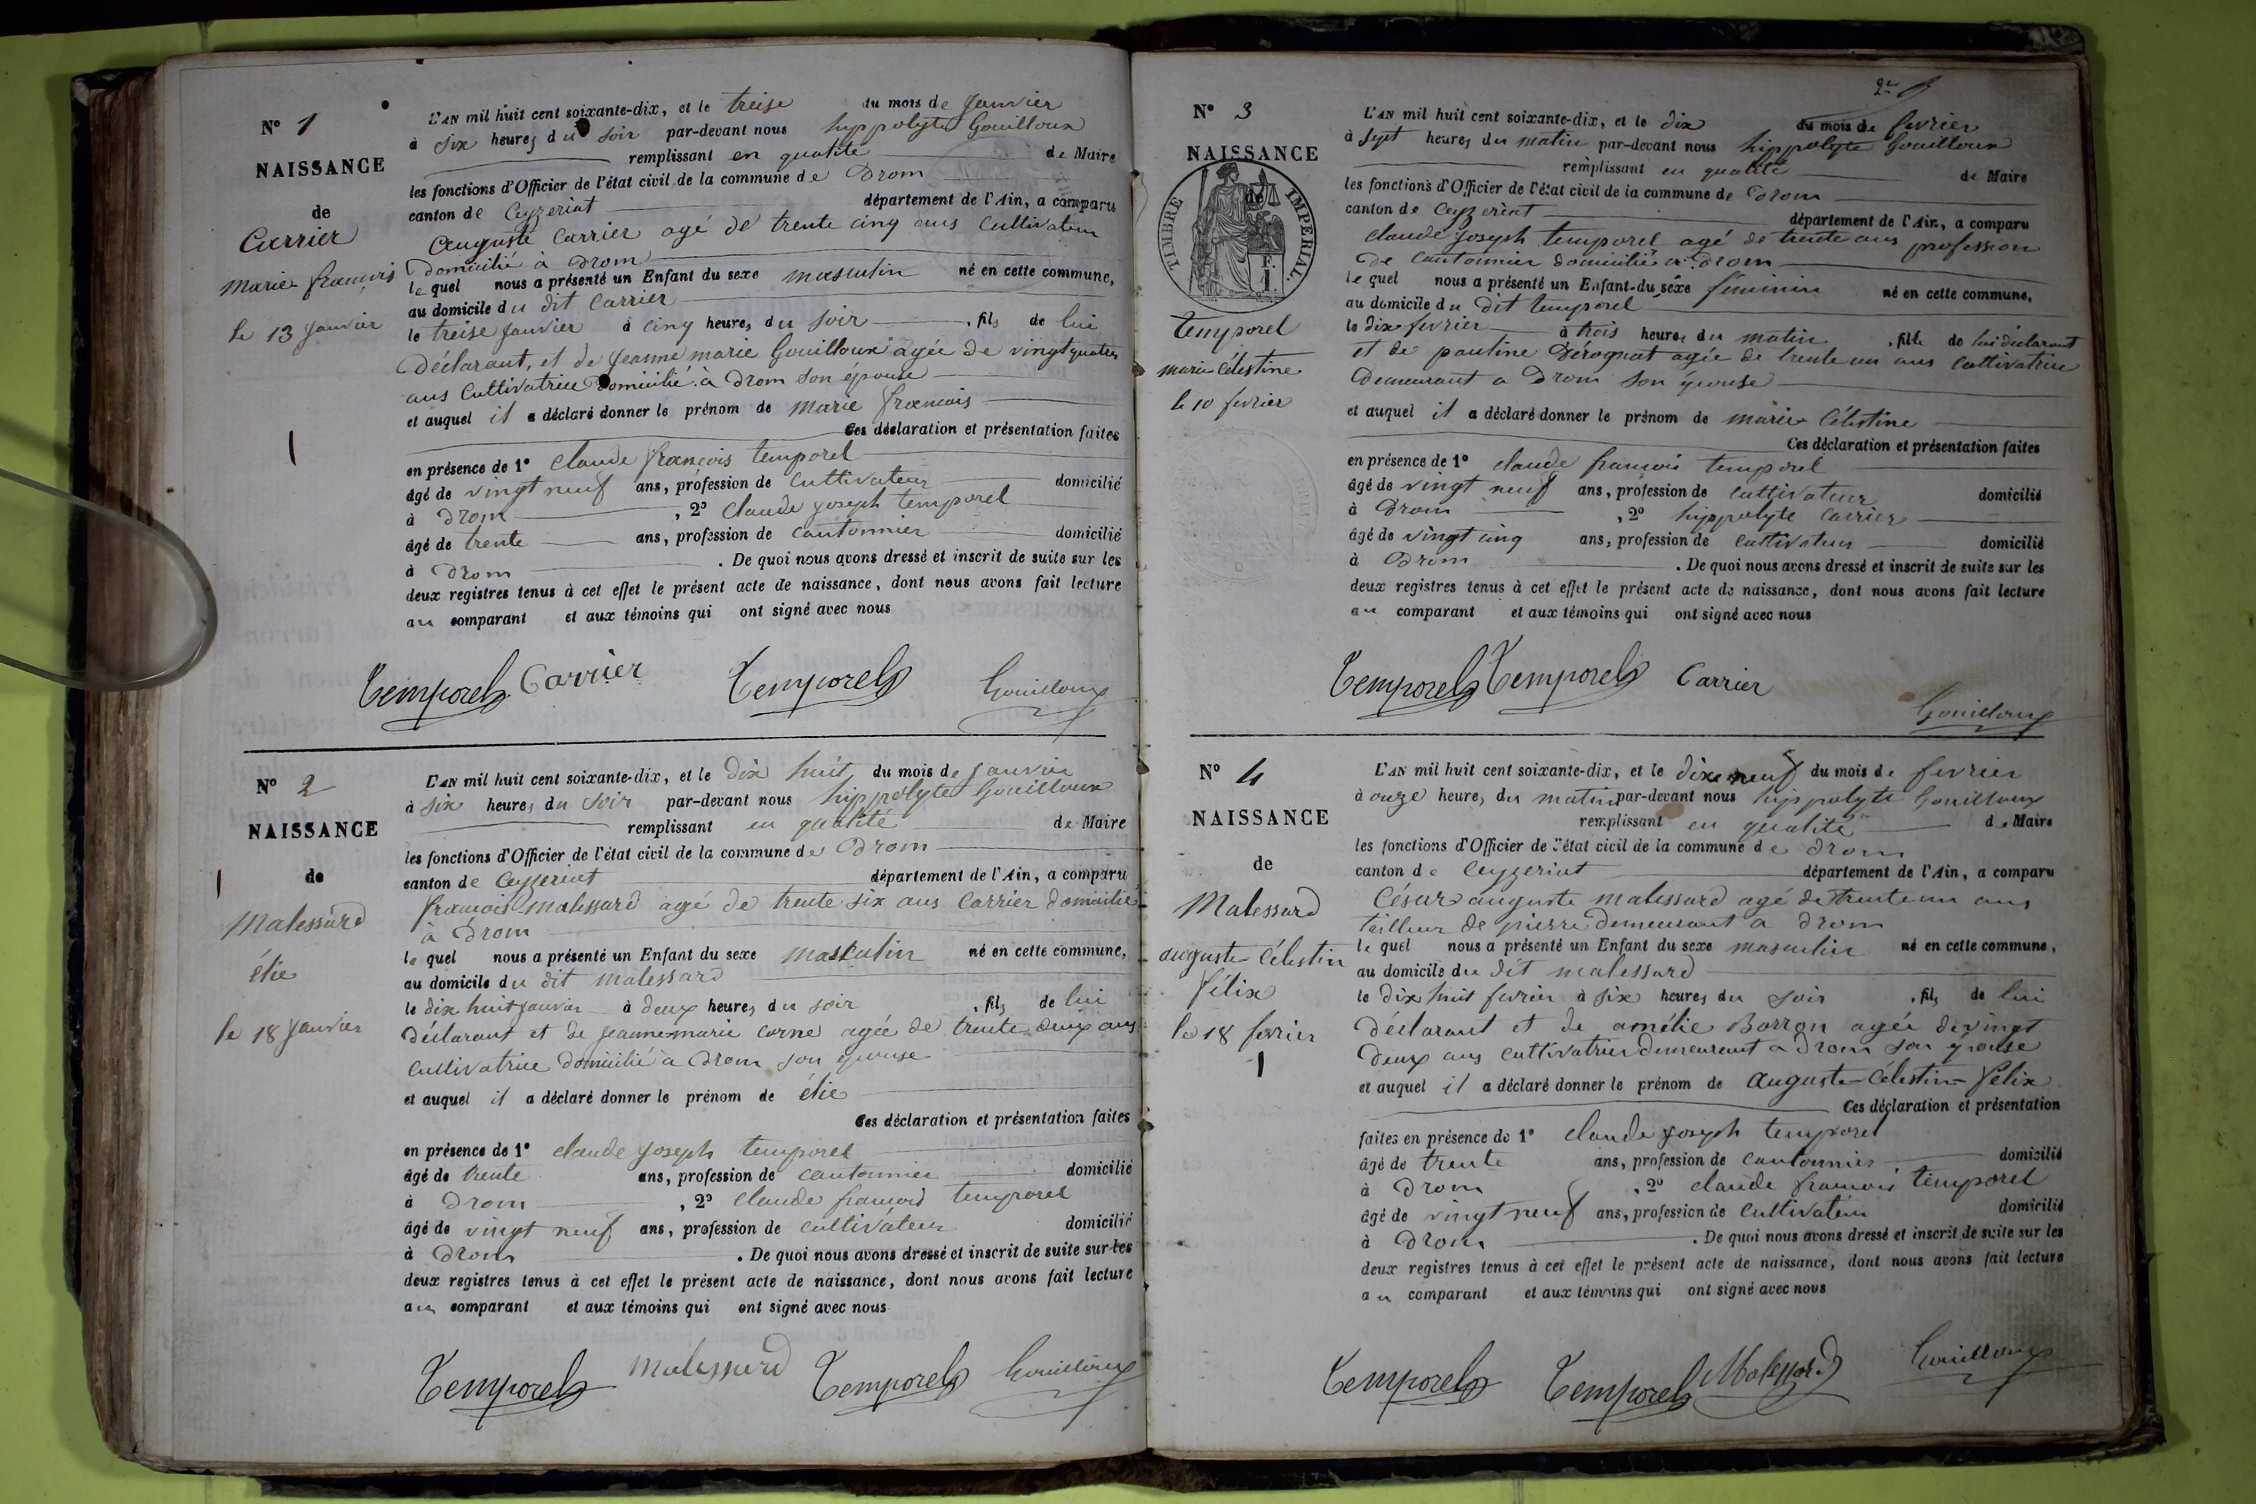 N° 1
NAISSANCE
de
Carrier
Marie françois
le 13 Janvier
L'AN mil huit cent soixante-dix, et le treise du mois de Janvier
à six heures du soir par-devant nous hyppolyte Gouilloux
remplissant en qualité de Maire
les fonctions d'Officier de l'état civil de la commune de Drom
canton de Ceyzeriat département de l'Ain, a comparu
Auguste Carrier agé de trente cinq ans Cultivateur
domicilié à Drom
le quel nous a présenté un Enfant du sexe masculin né en cette commune,
au domicile du dit Carrier
le treise Janvier à cinq heures du soir, fils de lui
Déclarant, et de Jeanne marie Gouilloux agée de vingt quatre
ans Cultivatrice Domicilié à Drom son épouse
et auquel il a déclaré donner le prénom de marie francois
Ces déclaration et présentation faites
en présence de 1° Claude françois temporel
âgé de vingt neuf ans, profession de Cultivateur domicilié
à Drom, 2° Claude joseph temporel
âgé de trente ans, profession de cantonnier domicilié
à Drom. De quoi nous avons dressé et inscrit de suite sur les
deux registres tenus à cet effet le présent acte de naissance, dont nous avons fait lecture
au comparant et aux témoins qui ont signé avec nous
Temporel Carrier Temporel Gouilloux
N° 2
NAISSANCE
de
Malessard
élie
le 18 Janvier
L'AN mil huit cent soixante-dix, et le Dix huit du mois de Janvier
à six heures du soir par-devant nous hippolyte Gouilloux
remplissant en qualité de Maire
les fonctions d'Officier de l'état civil de la commune de Drom
canton de Ceyzeriat département de l'Ain, a comparu
françois malessard agé de trente six ans Carrier domicilié
à Drom
le quel nous a présenté un Enfant du sexe masculin né en cette commune,
au domicile du dit malessard
le dix huit Janvier à deux heures du soir, fils de lui
Déclarant et de jeanne marie corne agée de trente deux ans
cultivatrice domicilié à Drom son épouse
et auquel il a déclaré donner le prénom de élie
Ces déclaration et présentation faites
en présence de 1° claude joseph temporel
âgé de trente ans, profession de cantonnier domicilié
à Drom, 2° Claude francois temporel
âgé de vingt neuf ans, profession de cultivateur domicilié
à Drom. De quoi nous avons dressé et inscrit de suite sur les
deux registres tenus à cet effet le présent acte de naissance, dont nous avons fait lecture
au comparant et aux témoins qui ont signé avec nous
Temporel Malessard Temporel Gouilloux
N° 3
NAISSANCE
de
TIMBRE IMPERIAL.
1 F.
temporel
marie Célestine
le 10 fevrier
L'AN mil huit cent soixante-dix, et le dix du mois de fevrier
à sept heures du matin par-devant nous hippolyte Gouilloux
remplissant en qualité de Maire
les fonctions d'Officier de l'état civil de la commune de Drom
canton de Ceyzeriat département de l'Ain, a comparu
Claude joseph temporel agé de trente ans profession
de cantonnier domicilié à Drom
le quel nous a présenté un Enfant du sexe féminin né en cette commune,
au domicile du dit temporel
le dix fevrier à trois heures du matin, fille de lui déclarant
et de pauline Dérognat agée de trente un ans cultivatrice
demeurant a Drom son épouse
et auquel il a déclaré donner le prénom de marie Célestine
Ces déclaration et présentation faites
en présence de 1° claude francois temporel
âgé de vingt neuf ans, profession de cultivateur domicilié
à Drom, 2° hippolyte carrier
âgé de vingt cinq ans, profession de cultivateur domicilié
à Drom. De quoi nous avons dressé et inscrit de suite sur les
deux registres tenus à cet effet le présent acte de naissance, dont nous avons fait lecture
au comparant et aux témoins qui ont signé avec nous
Temporel Temporel Carrier
Gouilloux
N° 4
NAISSANCE
de
Malessard
auguste Célestin
félix
le 18 fevrier
L'AN mil huit cent soixante-dix, et le dix neuf du mois de fevrier
à onze heures du matin par-devant nous hippolyte Gouilloux
remplissant en qualité de Maire
les fonctions d'Officier de l'état civil de la commune de Drom
canton de Ceyzeriat département de l'Ain, a comparu
César auguste malessard agé de trente un ans
tailleur de pierre demeurant a Drom
le quel nous a présenté un Enfant du sexe masculin né en cette commune,
au domicile du dit malessard
le Dix huit fevrier à six heures du soir, fils de lui
Déclarant et de amélie Borron agée de vingt
deux ans cultivatrice demeurant a Drom son épouse
et auquel il a déclaré donner le prénom de auguste-Celestin-félix
Ces déclaration et présentation
faites en présence de 1° claude joseph temporel
âgé de trente ans, profession de cantonnier domicilié
à Drom, 2° claude francois temporel
âgé de vingt neuf ans, profession de cultivateur domicilié
à Drom. De quoi nous avons dressé et inscrit de suite sur les
deux registres tenus à cet effet le présent acte de naissance, dont nous avons fait lecture
au comparant et aux témoins qui ont signé avec nous
Temporel Temporel Malessard Gouilloux